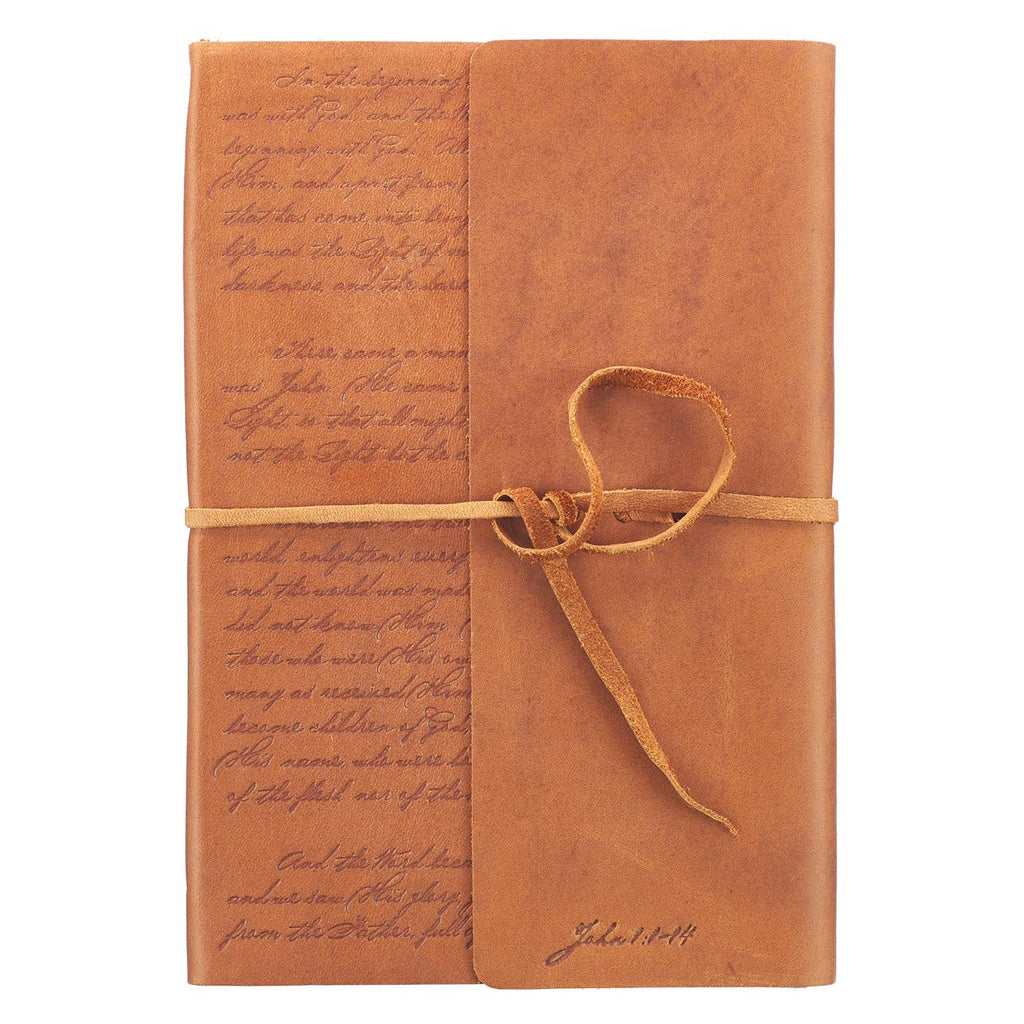 In the beginning
was with God, and the W
beginning with God. Al
Him, and apart from
that has come into being
life was the Light of m
darkness, and the dark
There came a man
was John. He came
Light, so that all might
not the Light, but he c
world, enlightens every
and the world was made
did not know Him.
those who were His ow
many as received Him
become children of God,
His name, who were bo
of the flesh nor of the
And the Word beca
and we saw His glory,
from the Father, full of
John 1:1-14